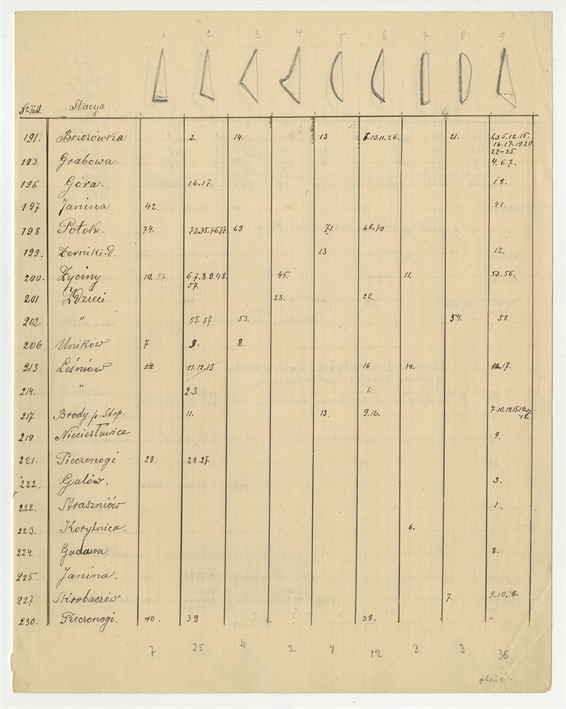 1 2 3 4 5 6 7 8 9
Stacya
191. Brzozówka 2. 14. 13 21.
16.17.19.20
22-25
193. Grabowa. 4.6.7.
196 Góra. 16.17. 18.
197 Janina 42. 41.
198 Potok. 74. 69 71. 68.70
199. 13 12.
200. Życiny 10.37. 6.7.8.9.48. 45. 11. 53.56.
57.
201 Zdzieci 23. 22.
202 " 55.57 53. 54. 58.
206 Uników 7 9. 8.
213 Leśniów 11.12.15 16 14. 17.
214. " 23. 1.
217. Brody p. Stop. 11. 13. 9.12.
219 Nieciesławice 9.
221. Pieczonogi 20. 28.27.
222. Galów. 3.
222. Straszniów 1.
223. Korytnica. 6.
224. Gadawa. 8.
225. Janina.
227 Skrobaczów 7. 9.10.
230. Pieczonogi. 40. 39 38.
7 25 4 2 4 12 3 3 36